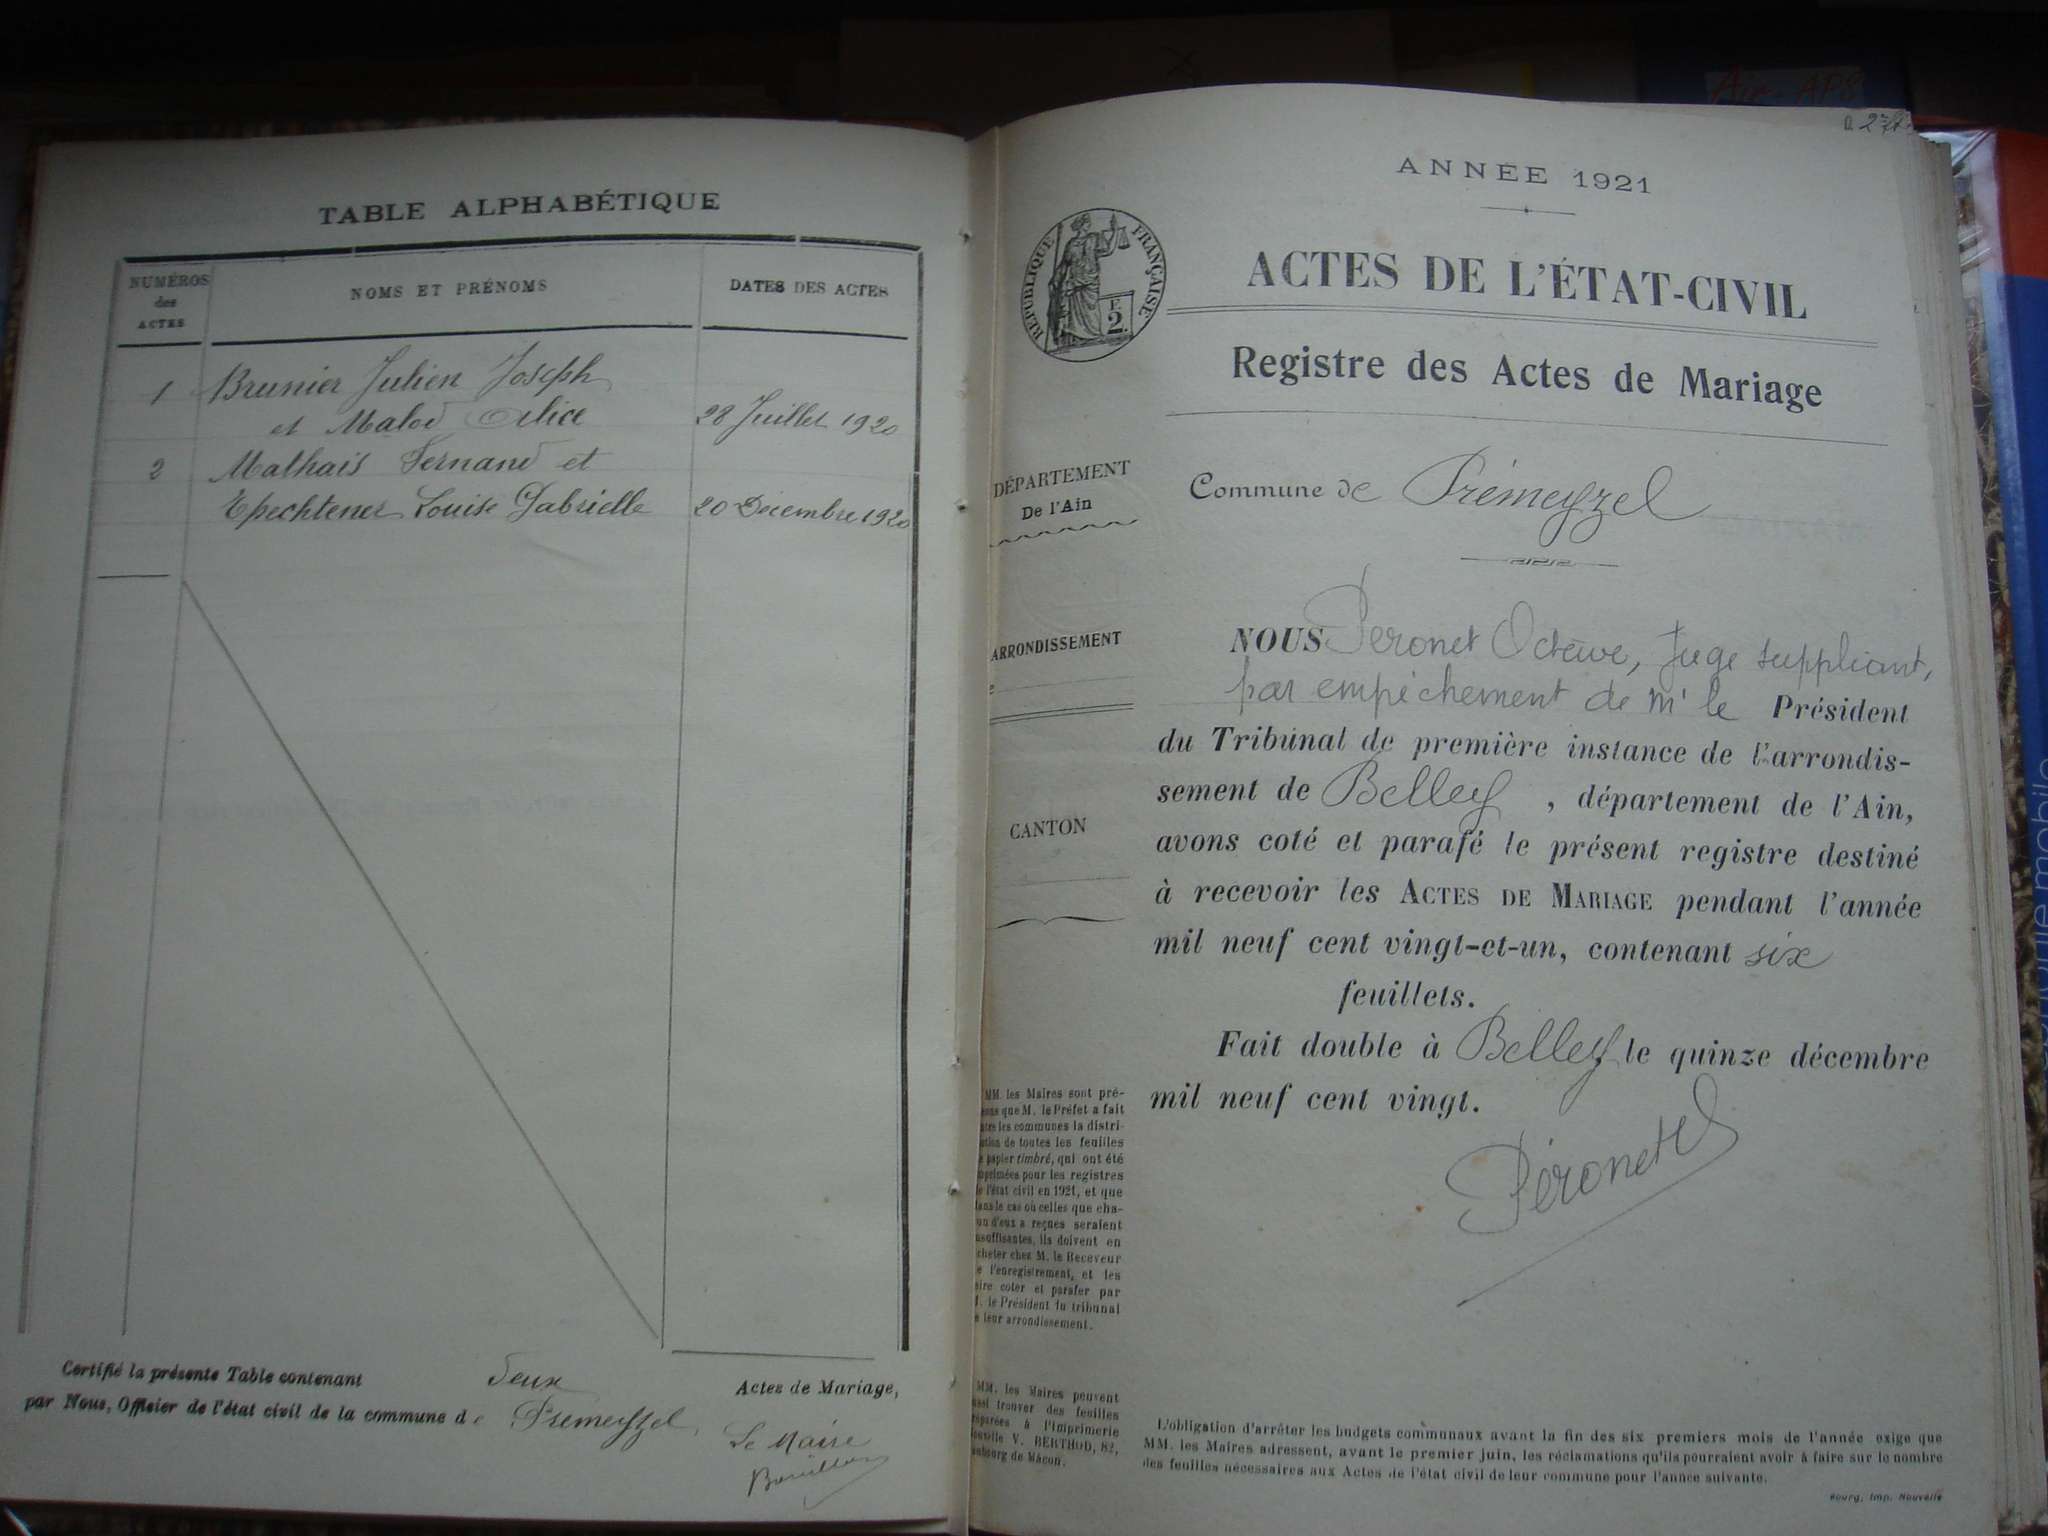 TABLE ALPHABÉTIQUE
NUMÉROS
des
ACTES
NOMS ET PRÉNOMS
DATES DES ACTES
1 Brunier Julien Joseph
et Malod Alice 28 Juillet 1920
2 Mathais Fernand et
Epechtener Louise Gabrielle 20 Décembre 1920
Certifié la présente Table contenant Deux Actes de Mariage,
par Nous, Officier de l'état civil de la commune de Prémeyzel
Le Maire
ANNÉE 1921
RÉPUBLIQUE FRANÇAISE
F.
2.
ACTES DE L'ÉTAT-CIVIL
Registre des Actes de Mariage
DÉPARTEMENT
De l'Ain
Commune de Prémeyzel
ARRONDISSEMENT
CANTON
NOUS Péronet Octave, Juge suppléant,
par empêchement de Mr le Président
du Tribunal de première instance de l'arrondis-
sement de Belley, département de l'Ain,
avons coté et parafé le présent registre destiné
à recevoir les ACTES DE MARIAGE pendant l'année
mil neuf cent vingt-et-un, contenant six
feuillets.
Fait double à Belley le quinze décembre
mil neuf cent vingt.
Péronet
MM. les Maires sont pré-
que M. le Préfet a fait
les communes la distri-
de toutes les feuilles
papier timbré, qui ont été
pour les registres
l'état civil en 1921, et que
le cas où celles que cha-
d'eux a reçues seraient
ils doivent en
chez M. le Receveur
l'enregistrement, et les
coter et parafer par
le Président du tribunal
leur arrondissement.
MM. les Maires peuvent
trouver des feuilles
à l'Imprimerie
V. BERTHOD, 82,
de Mâcon.
L'obligation d'arrêter les budgets communaux avant la fin des six premiers mois de l'année exige que
MM. les Maires adressent, avant le premier juin, les réclamations qu'ils pourraient avoir à faire sur le nombre
des feuilles nécessaires aux Actes de l'état civil de leur commune pour l'année suivante.
Bourg, Imp. Nouvelle